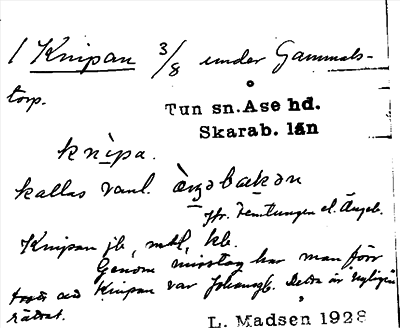 1 Knipan 3/8 under Gammals-
torp.
Tun sn. Åse hd.
Skarab. län
knìpa.
kallas vanl. àŋəbakən
jfr. Hemtungen el. Ängab.
Knipan jb, mtl, kb.
Genom misstag har man förr
trott att Knipan var Johansgb. Detta är nyligen
rättat.
L. Madsen 1928